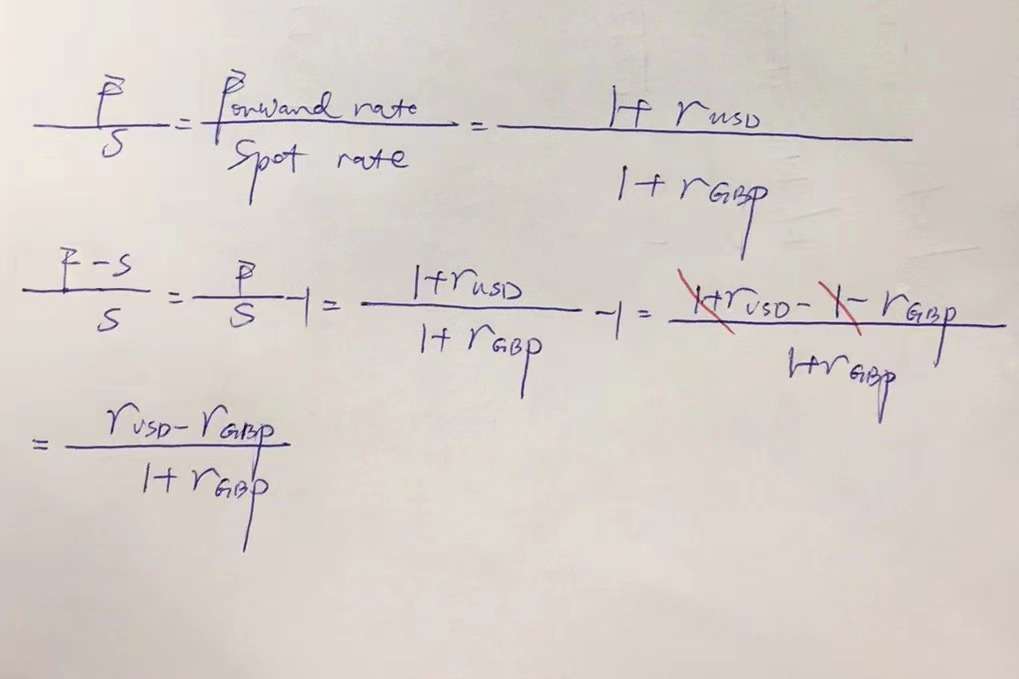 F/S = Forward rate/Spot rate = (1+ r_USD)/(1+ r_GBP)
(F-S)/S = F/S -1 = (1+r_USD)/(1+ r_GBP) -1 = (1+r_USD - 1 - r_GBP)/(1+r_GBP)
= (r_USD - r_GBP)/(1+ r_GBP)